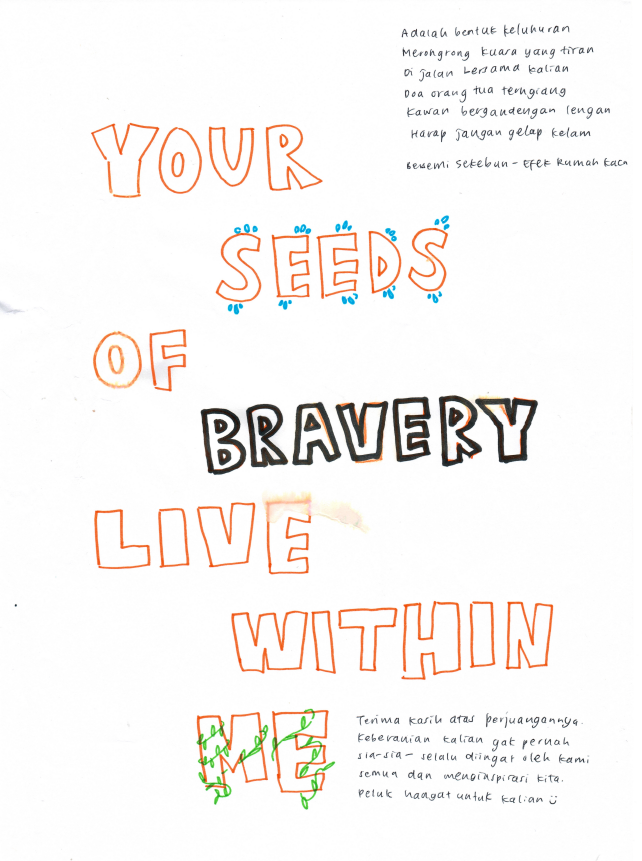 Adalah bentuk keluhuran
Merongrong kuasa yang tiran
Di jalan bersama kalian
Doa orang tua terngiang
Kawan bergandengan lengan
Harap jangan gelap kelam
Bersemi Sekebun - Efek Rumah Kaca
YOUR
SEEDS
OF
BRAVERY
LIVE
WITHIN
ME
Terima kasih atas perjuangannya.
Keberanian kalian gak pernah
sia-sia - selalu diingat oleh kami
semua dan menginspirasi kita.
Peluk hangat untuk kalian